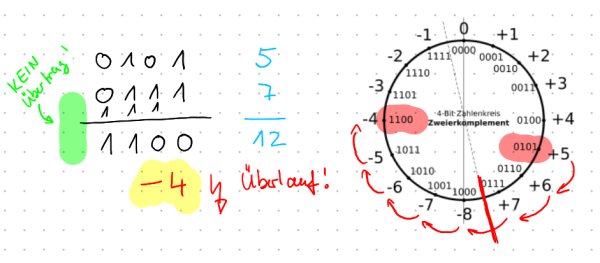 KEIN
Übertrag!
0 1 0 1 5
0 1 1 1 7
1 1 1
1 1 0 0 12
-4 Überlauf!
0
-1 +1
-2 +2
-3 +3
-4 +4
-5 +5
-6 +6
-7 +7
-8
0000
1111 0001
1110 0010
1101 0011
1100 0100
1011 0101
1010 0110
1001 0111
1000
4-Bit-Zahlenkreis
Zweierkomplement